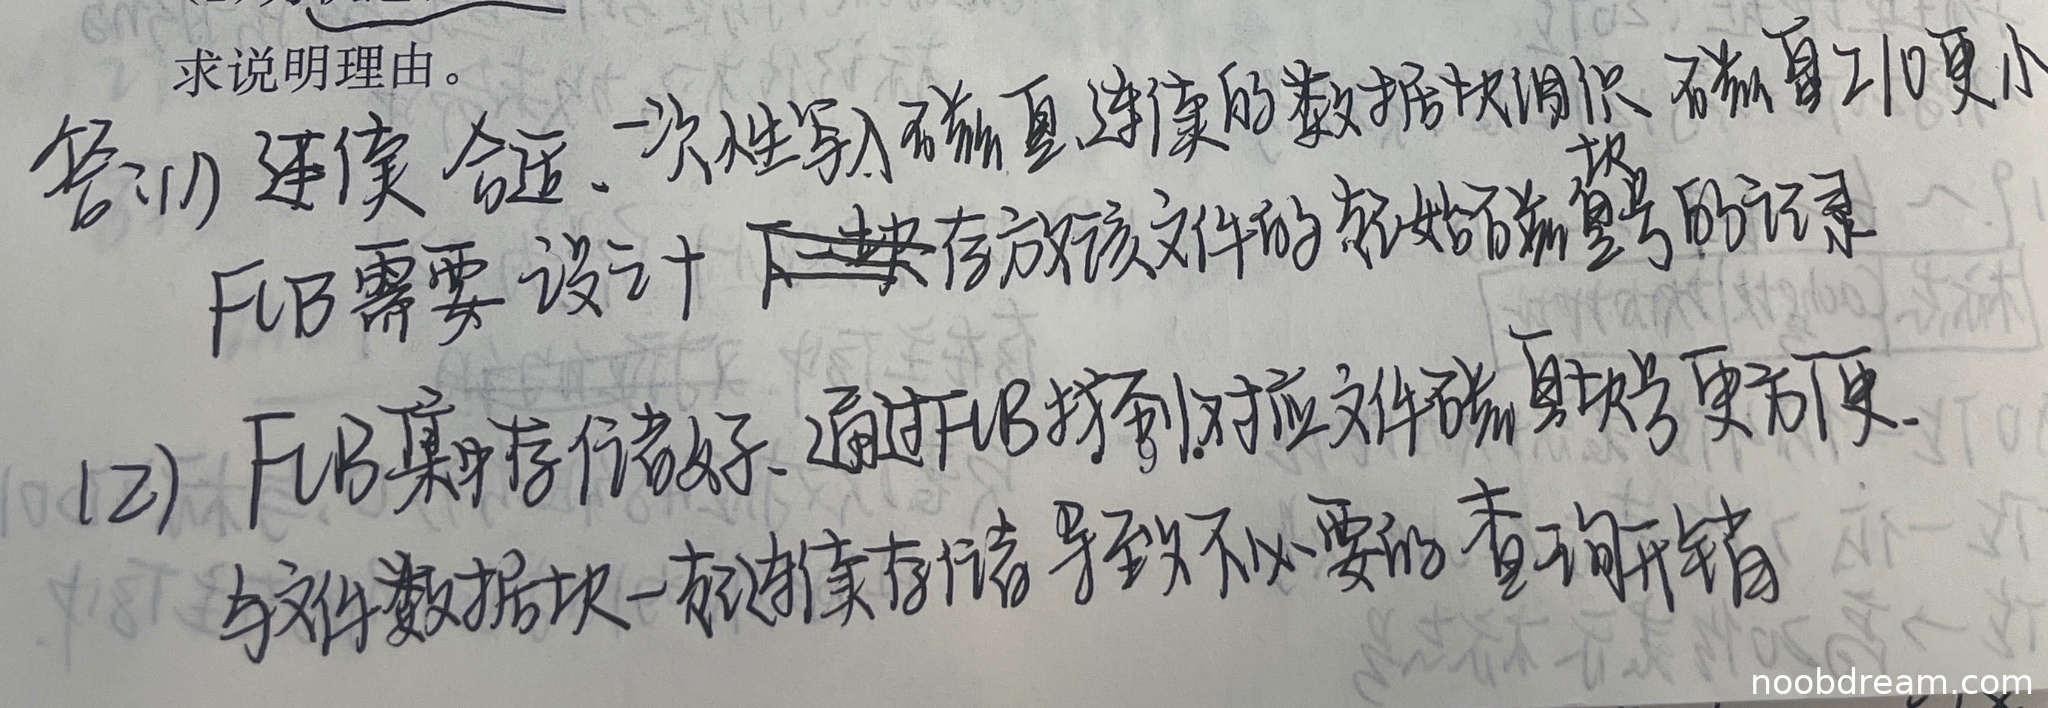 求说明理由。
答：(1) 连续 合适、一次性写入磁盘、连续的数据块组织 磁盘I/O更小
FCB需要设计 存放该文件的起始磁盘块号的记录
(2) FCB集中存储好、通过FCB找到对应文件磁盘块号更方便.
与文件数据块一起连续存储 导致不必要的查询开销
noobdream.com